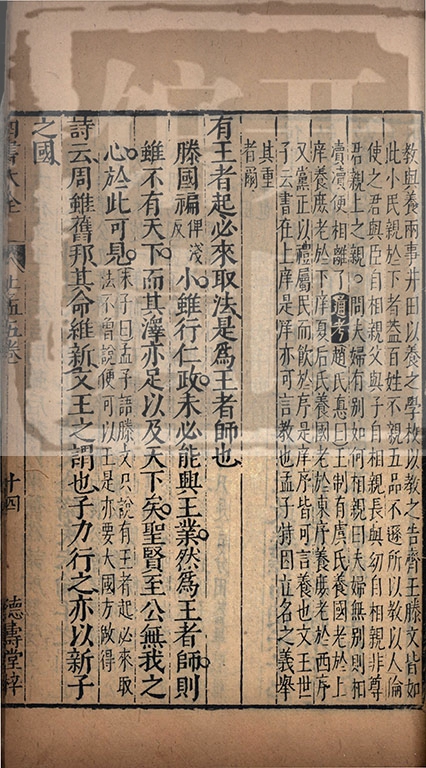 教與養兩事井田以養之學校以教之告齊王滕文皆如
此小民親於下者蓋百姓不親五品不遜所以教以人倫
使之君與臣自相親父與子自相親長與幼自相親非尊
君親上之親。問夫婦有別如何相親曰夫婦無別則和
賣瀆便相離了通考趙氏惪曰王制有虞氏養國老於上
庠養庶老於下庠夏后氏養國老於東序養庶老於西序
又黨正以禮屬民而飲於序是庠序皆可言養也文王世
子云書在上庠是庠亦可言教也孟子特因立名之義舉
其重
者爾
有王者起必來取法是爲王者師也
滕國褊俾淺反小雖行仁政未必能興王業然爲王者師則
雖不有天下而其澤亦足以及天下矣聖賢至公無我之
心於此可見朱子曰孟子語滕文只說有王者起必來取
法不曾說便可以王是亦要大國方做得
詩云周雖舊邦其命維新文王之謂也子力行之亦以新子
之國
四書大全
孟五卷
十四
德壽堂梓